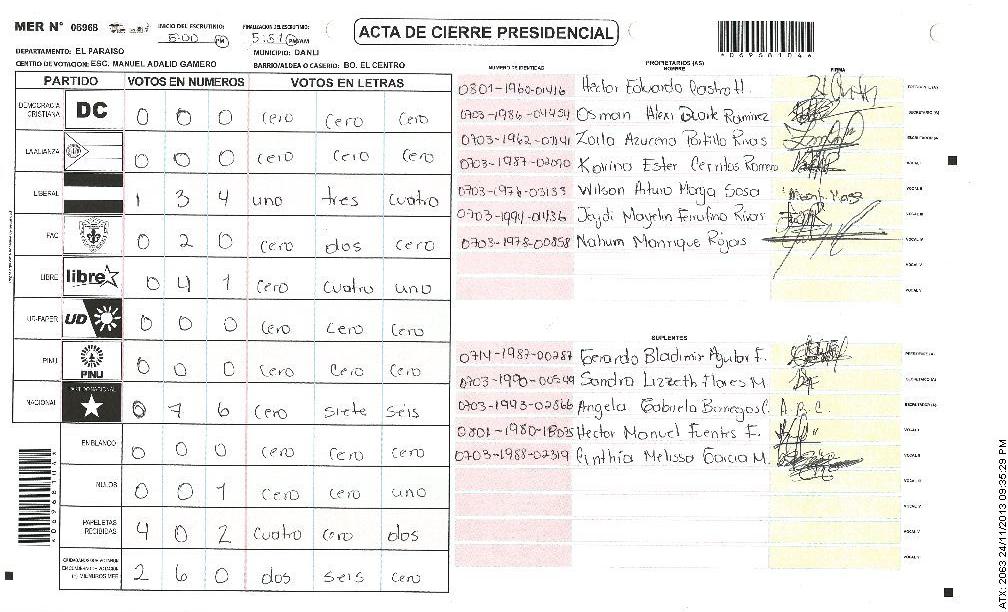 MER N° 06968
INICIO DEL ESCRUTINIO:
5:00 PM
FINALIZACION DEL ESCRUTINIO:
5:51 PM
ACTA DE CIERRE PRESIDENCIAL
DEPARTAMENTO: EL PARAISO
MUNICIPIO: DANLI
CENTRO DE VOTACION: ESC. MANUEL ADALID GAMERO
BARRIO/ALDEA O CASERIO: BO. EL CENTRO
PARTIDO VOTOS EN NUMEROS VOTOS EN LETRAS
DEMOCRACIA CRISTIANA DC 0 0 0 cero cero cero
LA ALIANZA 0 0 0 cero cero cero
LIBERAL 1 3 4 uno tres cuatro
FAC 0 2 0 cero dos cero
LIBRE libre 0 4 1 cero cuatro uno
UD-FAPER UD 0 0 0 cero cero cero
PINU PINU 0 0 0 cero cero cero
NACIONAL PARTIDO NACIONAL 0 7 6 cero siete seis
EN BLANCO 0 0 0 cero cero cero
NULOS 0 0 1 cero cero uno
PAPELETAS RECIBIDAS 4 0 2 cuatro cero dos
2 6 0 dos seis cero
NUMERO DE IDENTIDAD
PROPIETARIOS (AS)
NOMBRE
FIRMA
0801-1960-01416 Hector Eduardo Castro H.
0703-1986-04454 Osman Alexi Duarte Ramirez
Zoila Azucena Portillo Rivas
0703-1987-02090 Karina Ester Cerritos Romero
0703-1976-03133 Wilson Arturo Moga Sosa
0703-1994-01436 Rivas
0703-1978-00858 Nahum Manrique Rojas
SUPLENTES
0714-1987-00287 Gerardo Bladimir Aguilar F.
0703-1990-00549 Sandra Lizzeth Flores M.
0703-1993-02866 Angela Gabriela Banegas C. A.B.C.
Hector Manuel Fuentes F.
0703-1988-02319 Cinthia Melissa Garcia M.
ATX: 2063 24/11/2013 09:35:29 PM